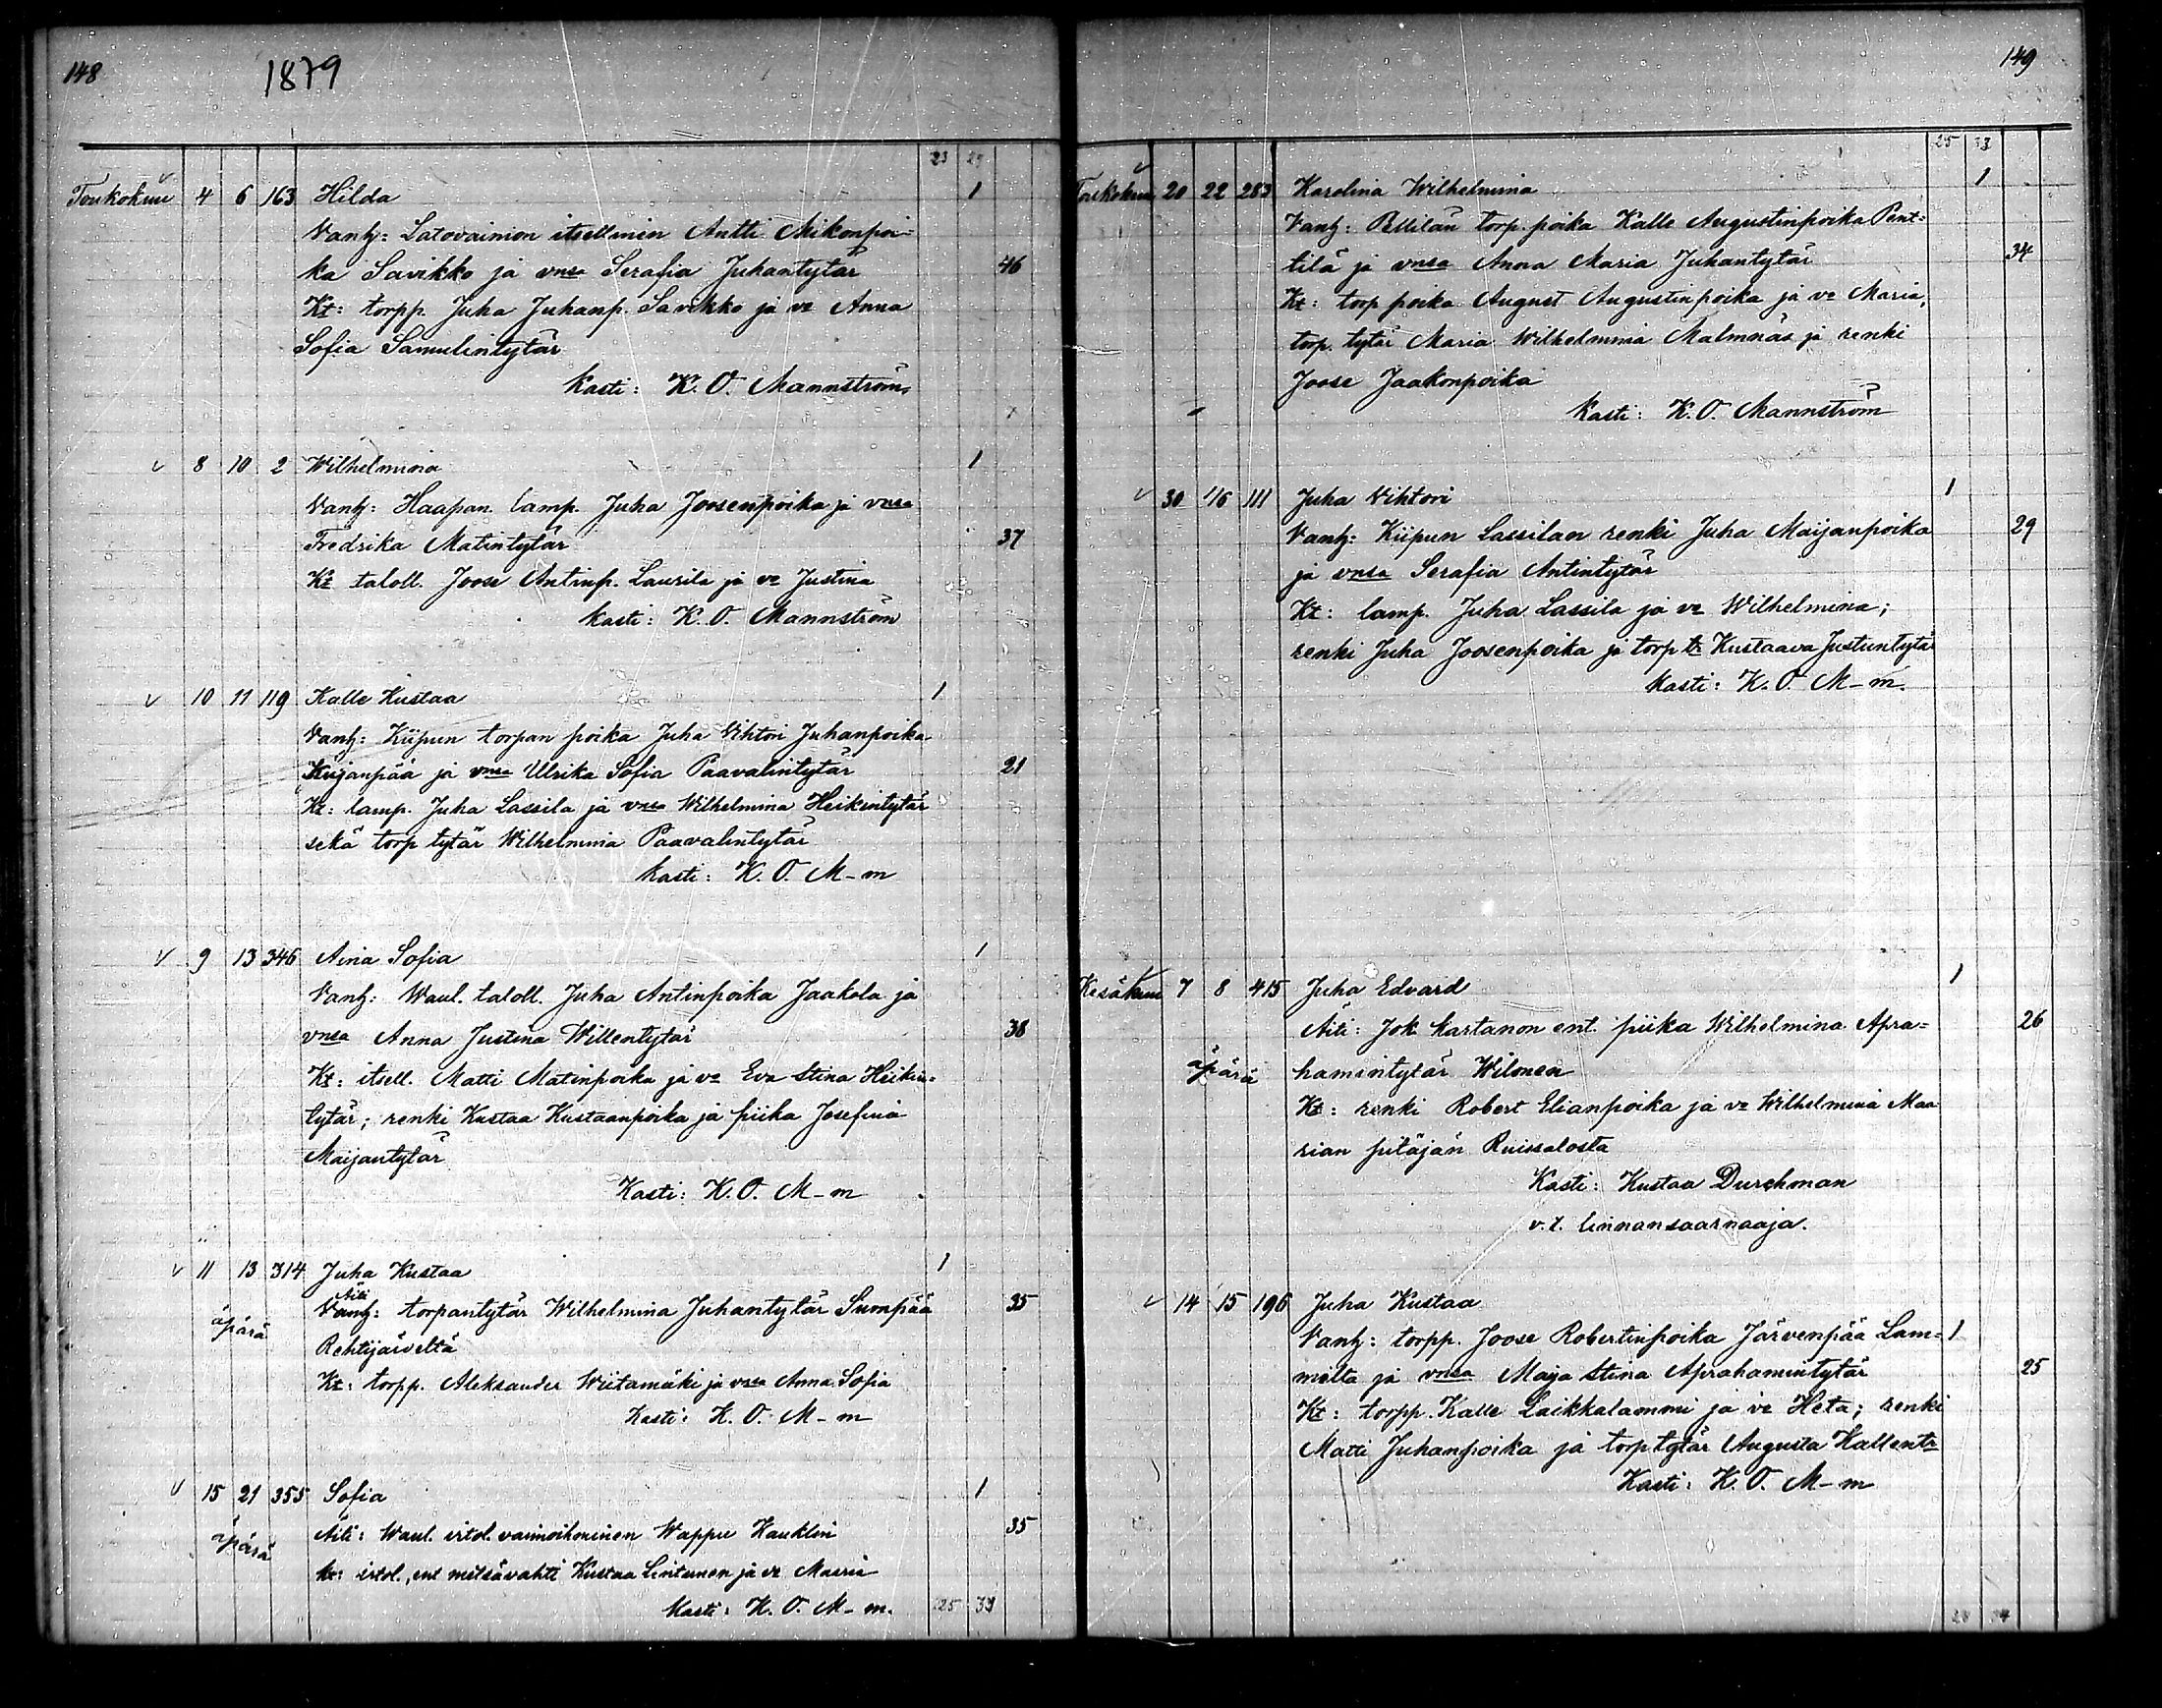 148
1879
23 29
Toukokuu 4 6 163 Hilda 1
Vanh: Latovainion itsellinen Antti Mikonpoi-
ka Savikko ja vnsa Serafia Juhantytär 46
Kt: torpp. Juha Juhanp. Savikko ja vo Anna
Sofia Samulintytär
Kasti: K. O. Mannström
8 10 2 Wilhelmina 1
Vanh: Haapan. lamp. Juha Joosenpoika ja vnsa
Fredrika Matintytär 37
Kt taloll. Joose Antinp. Laurila ja vo Justina
Kasti: K. O. Mannström
10 11 119 Kalle Kustaa 1
Vanh: Kiipun torpan poika Juha Vihtori Juhanpoika
Kujanpää ja vnsa Ulrika Sofia Paavalintytär 21
Kt: lamp. Juha Lassila ja vnsa Wilhelmina Heikintytär
sekä torp tytär Wilhelmina Paavalintytär
Kasti: K. O. M-m
9 13 346 Aina Sofia 1
Vanh: Waul. taloll. Juha Antinpoika Jaakola ja
vnsa Anna Justina Willentytär 38
Kt: itsell. Matti Matinpoika ja vo Eva Stina Heikin-
tytär; renki Kustaa Kustaanpoika ja piika Josefina
Maijantytär
Kasti: K. O. M-m
11 13 314 Juha Kustaa 1
Äiti
Vanh: torpantytär Wilhelmina Juhantytär Sumpää 35
äpärä
Rehtijärveltä
Kt: torpp. Aleksander Wiitamäki ja vnsa Anna Sofia
Kasti: K. O. M-m
15 21 355 Sofia 1
äpärä Äiti: Waul. irtol. vaimoihminen Wappu Hauklin 35
Kt: irtol., ent metsävahti Kustaa Lintunen ja vo Maria
Kasti: K. O. M-m. 25 33
149
25 33
Toukokuu 20 22 283 Karolina Wilhelmina 1
Vanh: Pellilän torp. poika Kalle Augustinpoika Pent-
tilä ja vnsa Anna Maria Juhantytär 34
Kt: torp poika August Augustinpoika ja vo Maria,
torp. tytär Maria Wilhelmina Malmnäs ja renki
Joose Jaakonpoika
Kasti: K. O. Mannström
30 1/6 111 Juha Vihtori 1
Vanh: Kiipun Lassilan renki Juha Maijanpoika 29
ja vnsa Serafia Antintytär
Kt: lamp. Juha Lassila ja vo Wilhelmina;
renki Juha Joosenpoika ja torp tr Kustaava Justuntytär
Kasti: K. O. M-m.
Kesäkuu 7 8 415 Juha Edvard 1
Äiti: Jok. kartanon ent. piika Wilhelmina Apra- 26
äpärä hamintytär Wilonen
Kt: renki Robert Elianpoika ja vo Wilhelmina Maa
rian pitäjän Ruissalosta
Kasti: Kustaa Durchman
v. t. linnansaarnaaja.
14 15 196 Juha Kustaa
Vanh: torpp. Joose Robertinpoika Järvenpää Lam- 1
milta ja vnsa Maija Stina Aprahamintytär 25
Kt: torpp. Kalle Laikkalammi ja vo Heta; renki
Matti Juhanpoika ja torp tytär Augusta Kallentr
Kasti: K. O. M-m